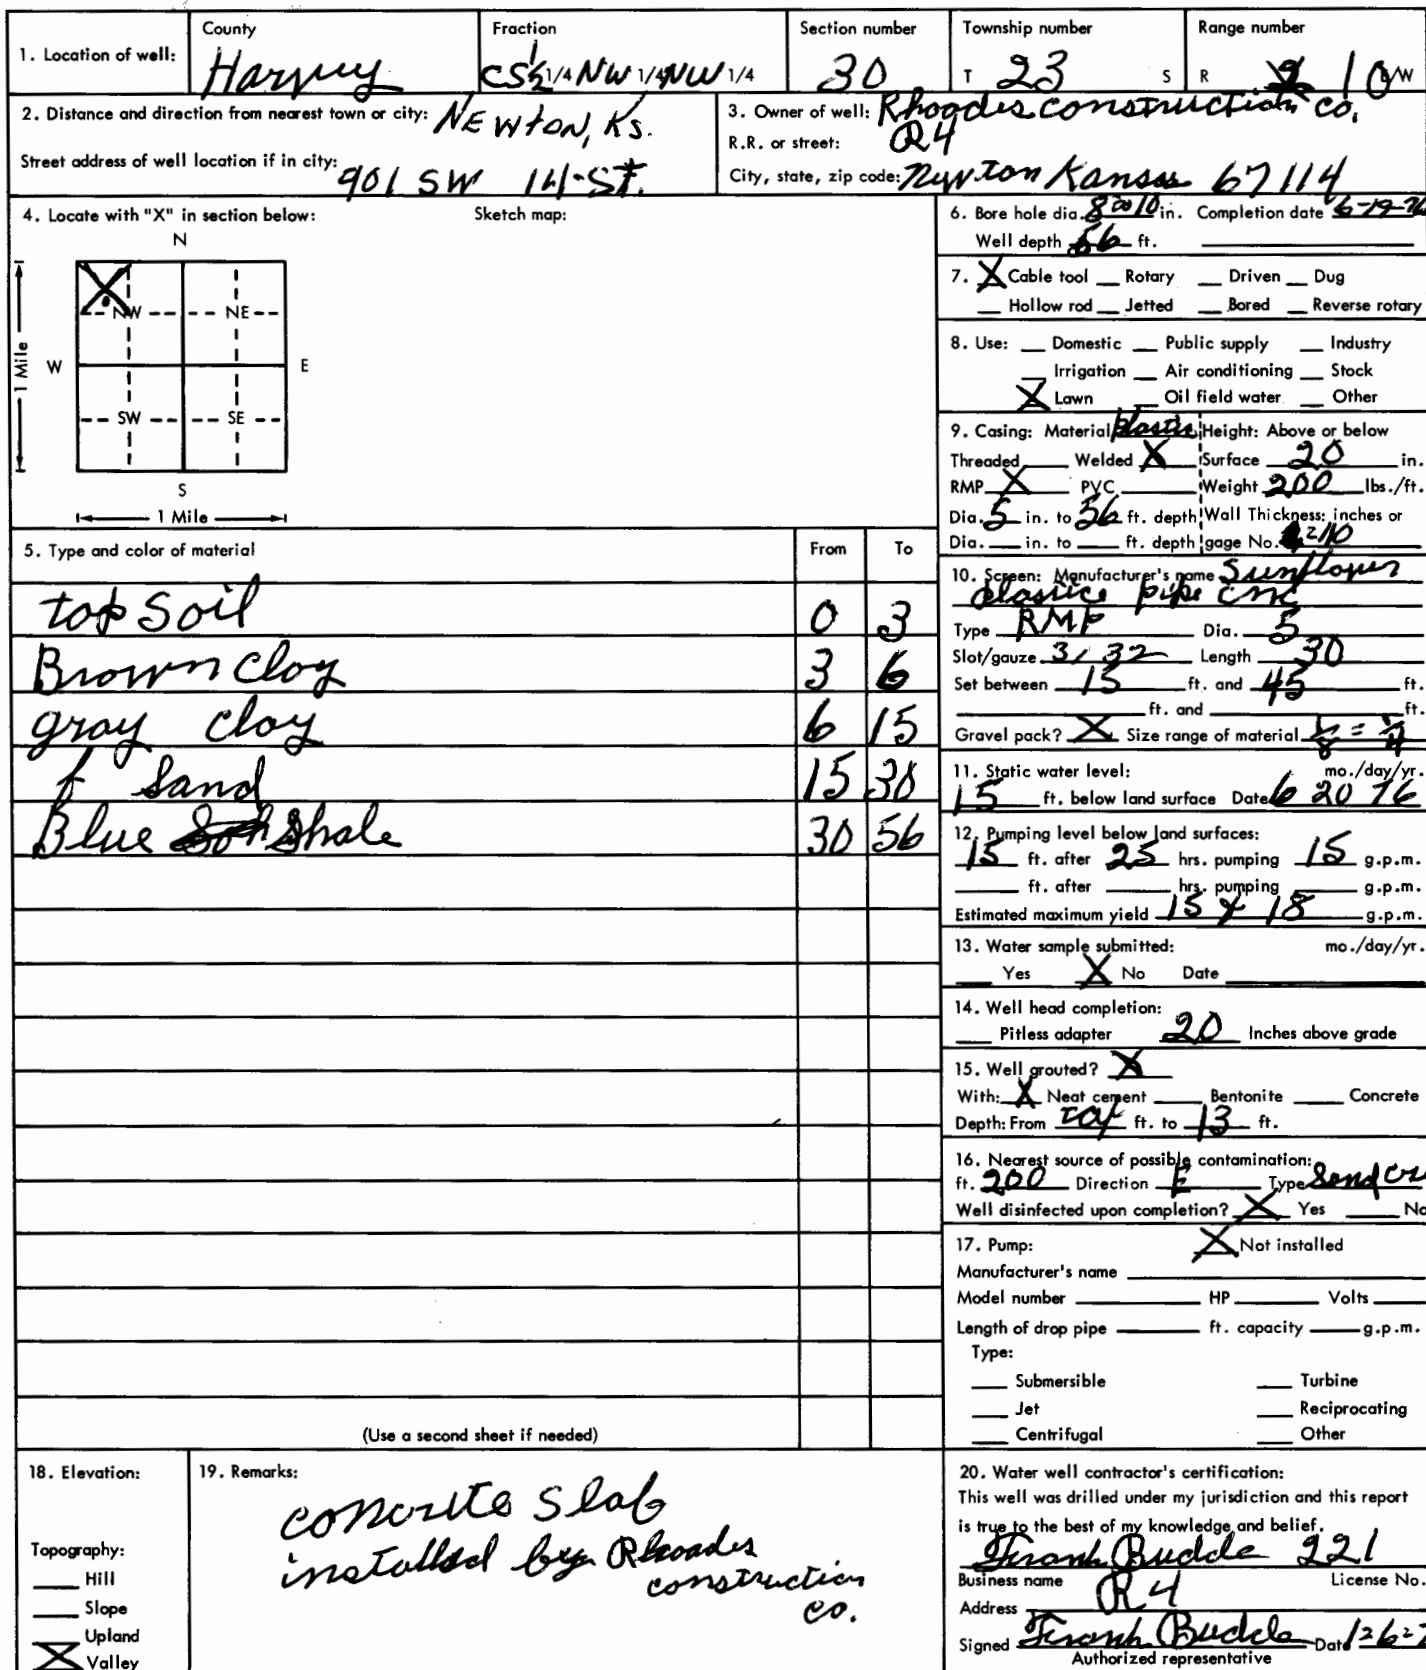 County Fraction Section number Township number Range number
1. Location of well: Harvey CS½ 1/4 NW 1/4 NW 1/4 30 T 23 S R 1 E/W
2. Distance and direction from nearest town or city: NEWTON, KS.
Street address of well location if in city: 901 SW 14-ST.
3. Owner of well: Rhoades construction co.
R.R. or street: R4
City, state, zip code: Newton Kansas 67114
4. Locate with "X" in section below: Sketch map:
N
NW NE
1 Mile W E
SW SE
S
1 Mile
6. Bore hole dia. 8 to 10 in. Completion date 6-19-76
Well depth 56 ft.
7. X Cable tool Rotary Driven Dug
Hollow rod Jetted Bored Reverse rotary
8. Use: Domestic Public supply Industry
Irrigation Air conditioning Stock
X Lawn Oil field water Other
9. Casing: Material plastic Height: Above or below
Threaded Welded X Surface 20 in.
RMP X PVC Weight 200 lbs./ft.
Dia. 5 in. to 56 ft. depth Wall Thickness: inches or
Dia. in. to ft. depth gage No.
5. Type and color of material From To
top soil 0 3
Brown Clay 3 6
gray clay 6 15
f Sand 15 30
Blue Shale 30 56
(Use a second sheet if needed)
10. Screen: Manufacturer's name Sunflower
plastice pipe inc
Type RMP Dia. 5
Slot/gauze 3/32 Length 30
Set between 15 ft. and 45 ft.
ft. and ft.
Gravel pack? X Size range of material 1/8 = 1/4
11. Static water level: mo./day/yr.
15 ft. below land surface Date 6 20 76
12. Pumping level below land surfaces:
15 ft. after 25 hrs. pumping 15 g.p.m.
ft. after hrs. pumping g.p.m.
Estimated maximum yield 15 18 g.p.m.
13. Water sample submitted: mo./day/yr.
Yes X No Date
14. Well head completion:
Pitless adapter 20 Inches above grade
15. Well grouted? X
With: X Neat cement Bentonite Concrete
Depth: From top ft. to 13 ft.
16. Nearest source of possible contamination:
ft. 200 Direction E Type Sand
Well disinfected upon completion? X Yes No
17. Pump: X Not installed
Manufacturer's name
Model number HP Volts
Length of drop pipe ft. capacity g.p.m.
Type:
Submersible Turbine
Jet Reciprocating
Centrifugal Other
18. Elevation:
Topography:
Hill
Slope
Upland
X Valley
19. Remarks:
concrite slab
installed by Rhoades
construction
co.
20. Water well contractor's certification:
This well was drilled under my jurisdiction and this report
is true to the best of my knowledge and belief.
Frank Budde 221
Business name License No.
Address R4
Signed Frank Budde Date
Authorized representative